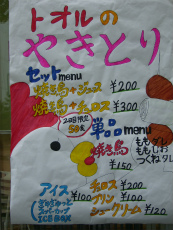 トオルの
やきとり
セットmenu
焼き鳥+ジュース ¥200
焼き鳥+チュロス ¥300
20日限定
50食
単品menu
焼き鳥
¥150
ももダレ
ももしお
つくねダレ
アイス
スーパーカップ
ICE BOX
¥100
チュロス ¥200
プリン ¥100
シュークリーム ¥120